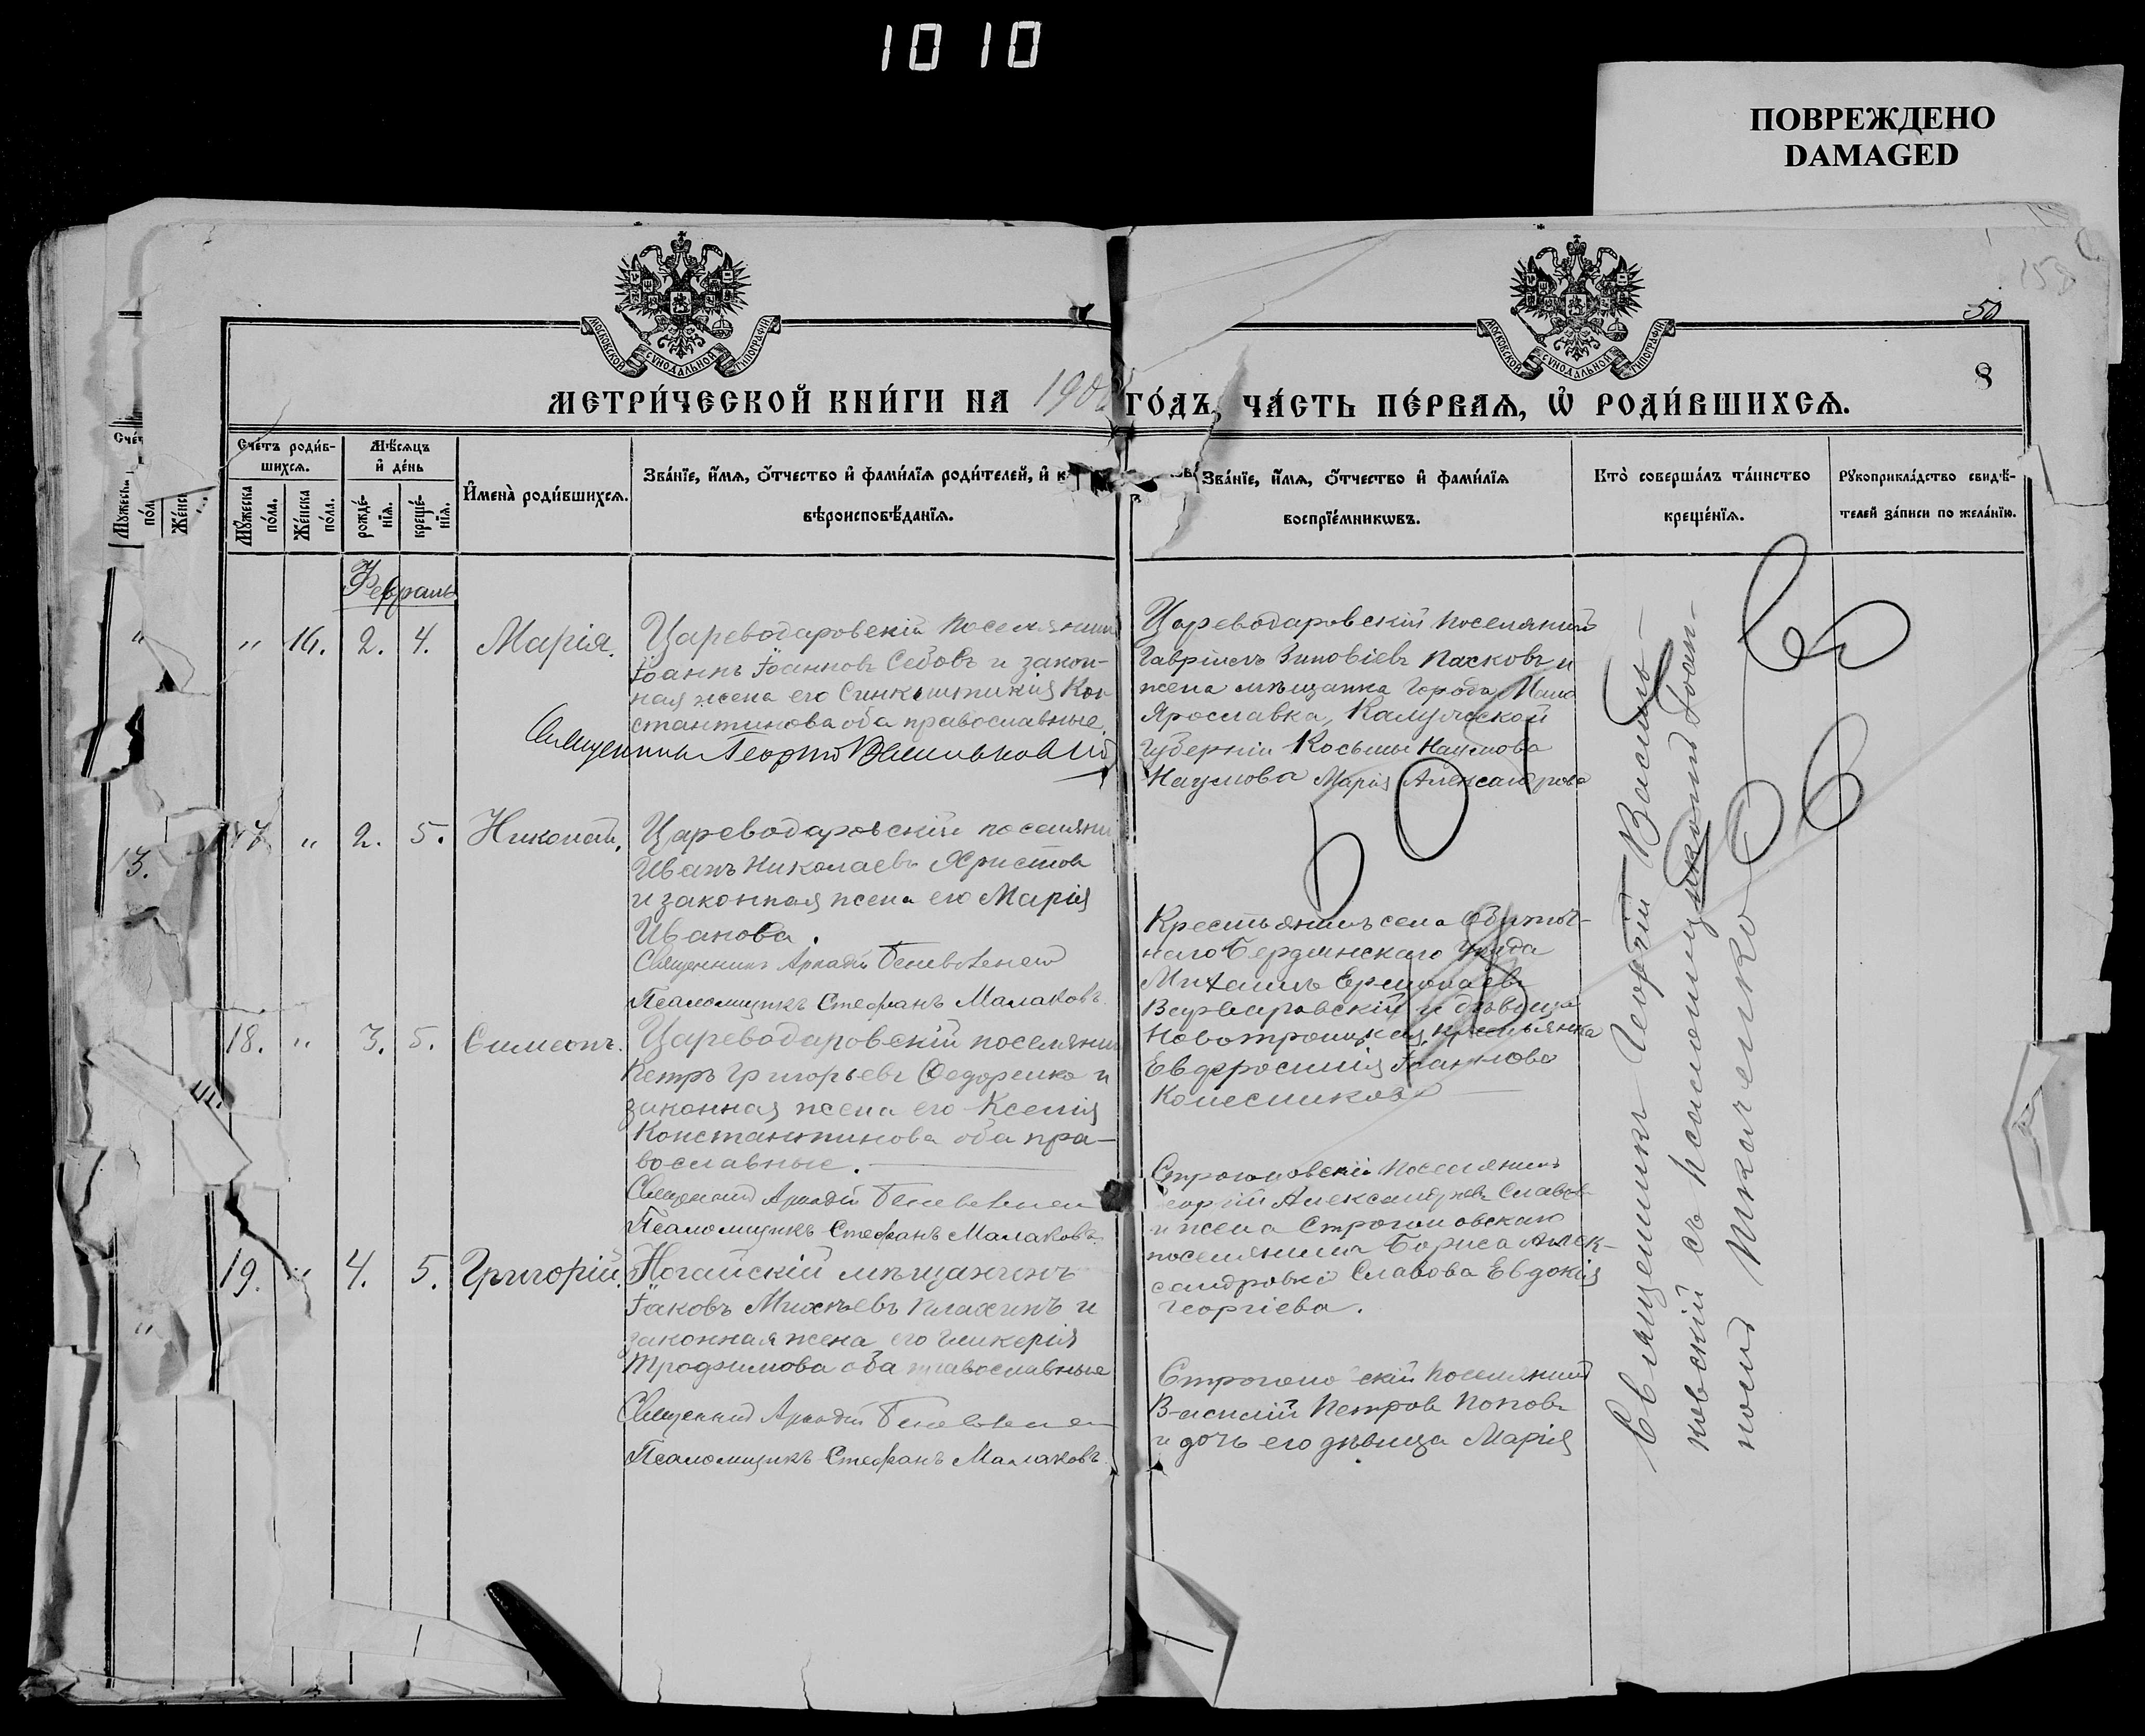 1010
ПОВРЕЖДЕНО
DAMAGED
50
8
МОСКОВСКОЙ СУНОДАЛЬНОЙ ТИПОГРАФІИ
МОСКОВСКОЙ СУНОДАЛЬНОЙ ТИПОГРАФІИ
МЕТРИ́ЧЕСКОЙ КНИ́ГИ НА 190 ГО́ДЪ, ЧА́СТЬ ПЕ́РВАЯ, Ѡ҆ РОДИ́ВШИХСЯ.
Сче́тъ роди́в-
шихся.
Мѣ́сяцъ
и҆ де́нь
Мꙋ́жеска по́ла.
Же́нска по́ла.
рожде́-
нїя.
креще́-
нїя.
И҆мена̀ роди́вшихся.
Зва́нїе, и҆́мя, ѻ҆́тчество и҆ фами́лїя роди́телей, и҆ к
вѣроисповѣ́данїя.
Зва́нїе, и҆́мя, ѻ҆́тчество и҆ фами́лїя
воспрїе́мникѡвъ.
Кто̀ соверша́лъ та́инство
креще́нїя.
Рꙋкоприкла́дство свидѣ́-
телей за́писи по жела́нїю.
Февраль
" 16. 2. 4. Марія.
Цареводаровскій поселянинъ
Іоаннъ Іоанновъ Седовъ и закон-
ная жена его Синклитикія Кон
стантинова оба православные.
Священникъ Георгій Васильковскій
Цареводаровскій поселянинъ
Гавріилъ Зиновіевъ Пасковъ и
жена мѣщанка города Мало
Ярославка, Калужской
губерніи Косьмы Наумова
Наумова Марія Александрова
17. " 2. 5. Николай.
Цареводаровскій поселяни
Иванъ Николаевъ Христов
и законная жена его Марія
Иванова.
Священникъ Аркадій
Псаломщикъ Стефанъ Малаковъ.
Крестьянинъ села Обиточ-
наго Бердянскаго уѣзда
Михаилъ Ермолаевъ
Варваровскій и дѣвица
Новотроицкая крестьянка
Евфросинія
Колесникова
18. " 3. 5. Симеонъ.
Цареводаровскій поселянин
Петръ Григорьевъ Федоренко и
законная жена его Ксенія
Константинова оба пра-
вославные.
Священникъ Аркадій
Псаломщикъ Стефанъ Малаковъ
поселянинъ
Александровъ Славов
и жена Строгоновскаго
поселянина Бориса Алек-
сандрова Славова Евдокія
Георгіева.
19. " 4. 5. Григорій.
Ногайскій мѣщанинъ
Іаковъ Михѣевъ Плахинъ и
законная жена его Гликерія
Трофимова оба православные
Священникъ Аркадій
Псаломщикъ Стефанъ Малаковъ
скій поселянинъ
Василій Петровъ Поповъ
и дочь его дѣвица Марія
Священникъ Георгій Василь-
ковскій съ псаломщикомъ Іоан-
номъ Ткаченко
13.